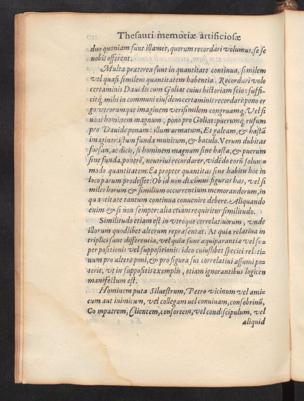 Thesauri memoriæ artificiosæ
duo quoniam sunt illarum, quorum recordari volumus, se se
nobis offerent.
Multa præterea sunt in quantitate continua, similem
vel quasi similem quantitatem habentia. Recordari volo
certaminis Dauidis cum Goliat cuius historiam scio: suffi-
cit mihi in communi eiusdem certaminis recordari pono er-
go vtrorumque imaginem verisimilem congruam. Vel si
non: hominem magnum, pono pro Goliat: puerum ensem
pro Dauide ponam: illum armatum, Et galeam, & hasta
imaginor: istum funda munitum, & baculo. Verum dubitas
forsan, ac dicis, si hominem magnum sine hasta, & puerum
sine funda, ponerē, neutrius recordarer, vide do eorū solummodo
quantitatem: Ea propter quantitas sine habitu hoc in
loco parum prodesset: Qd id non diximus figuras has, vel si
miles horum & similium occurrentium memorandorum, in
quantitate tantum continua conuenire debere. Aliquando
enim & si non semper: alia etiam requiritur similitudo.
Similitudo etiam est in vtroque correlatiuorum, vnde
illorum quodlibet alterum repræsentat. At quia relatiua in
triplici sunt differentia, vel quia sunt æquiparantia vel su-
per positionis vel suppositionis: ideo cuiuslibet speciei relati-
uum pro altero poni, & pro figura sui correlatiui assumi po-
terit, vt in suppositis exemplis, etiam ignorantibus logicen
manifestum est.
Hominem puta Siluestrum, Petro vicinum vel ami-
cum aut inimicum, vel collegam vel conuiuam, consobrinū,
Compatrem, Clientem, consortem, vel condiscipulum, vel
aliquid